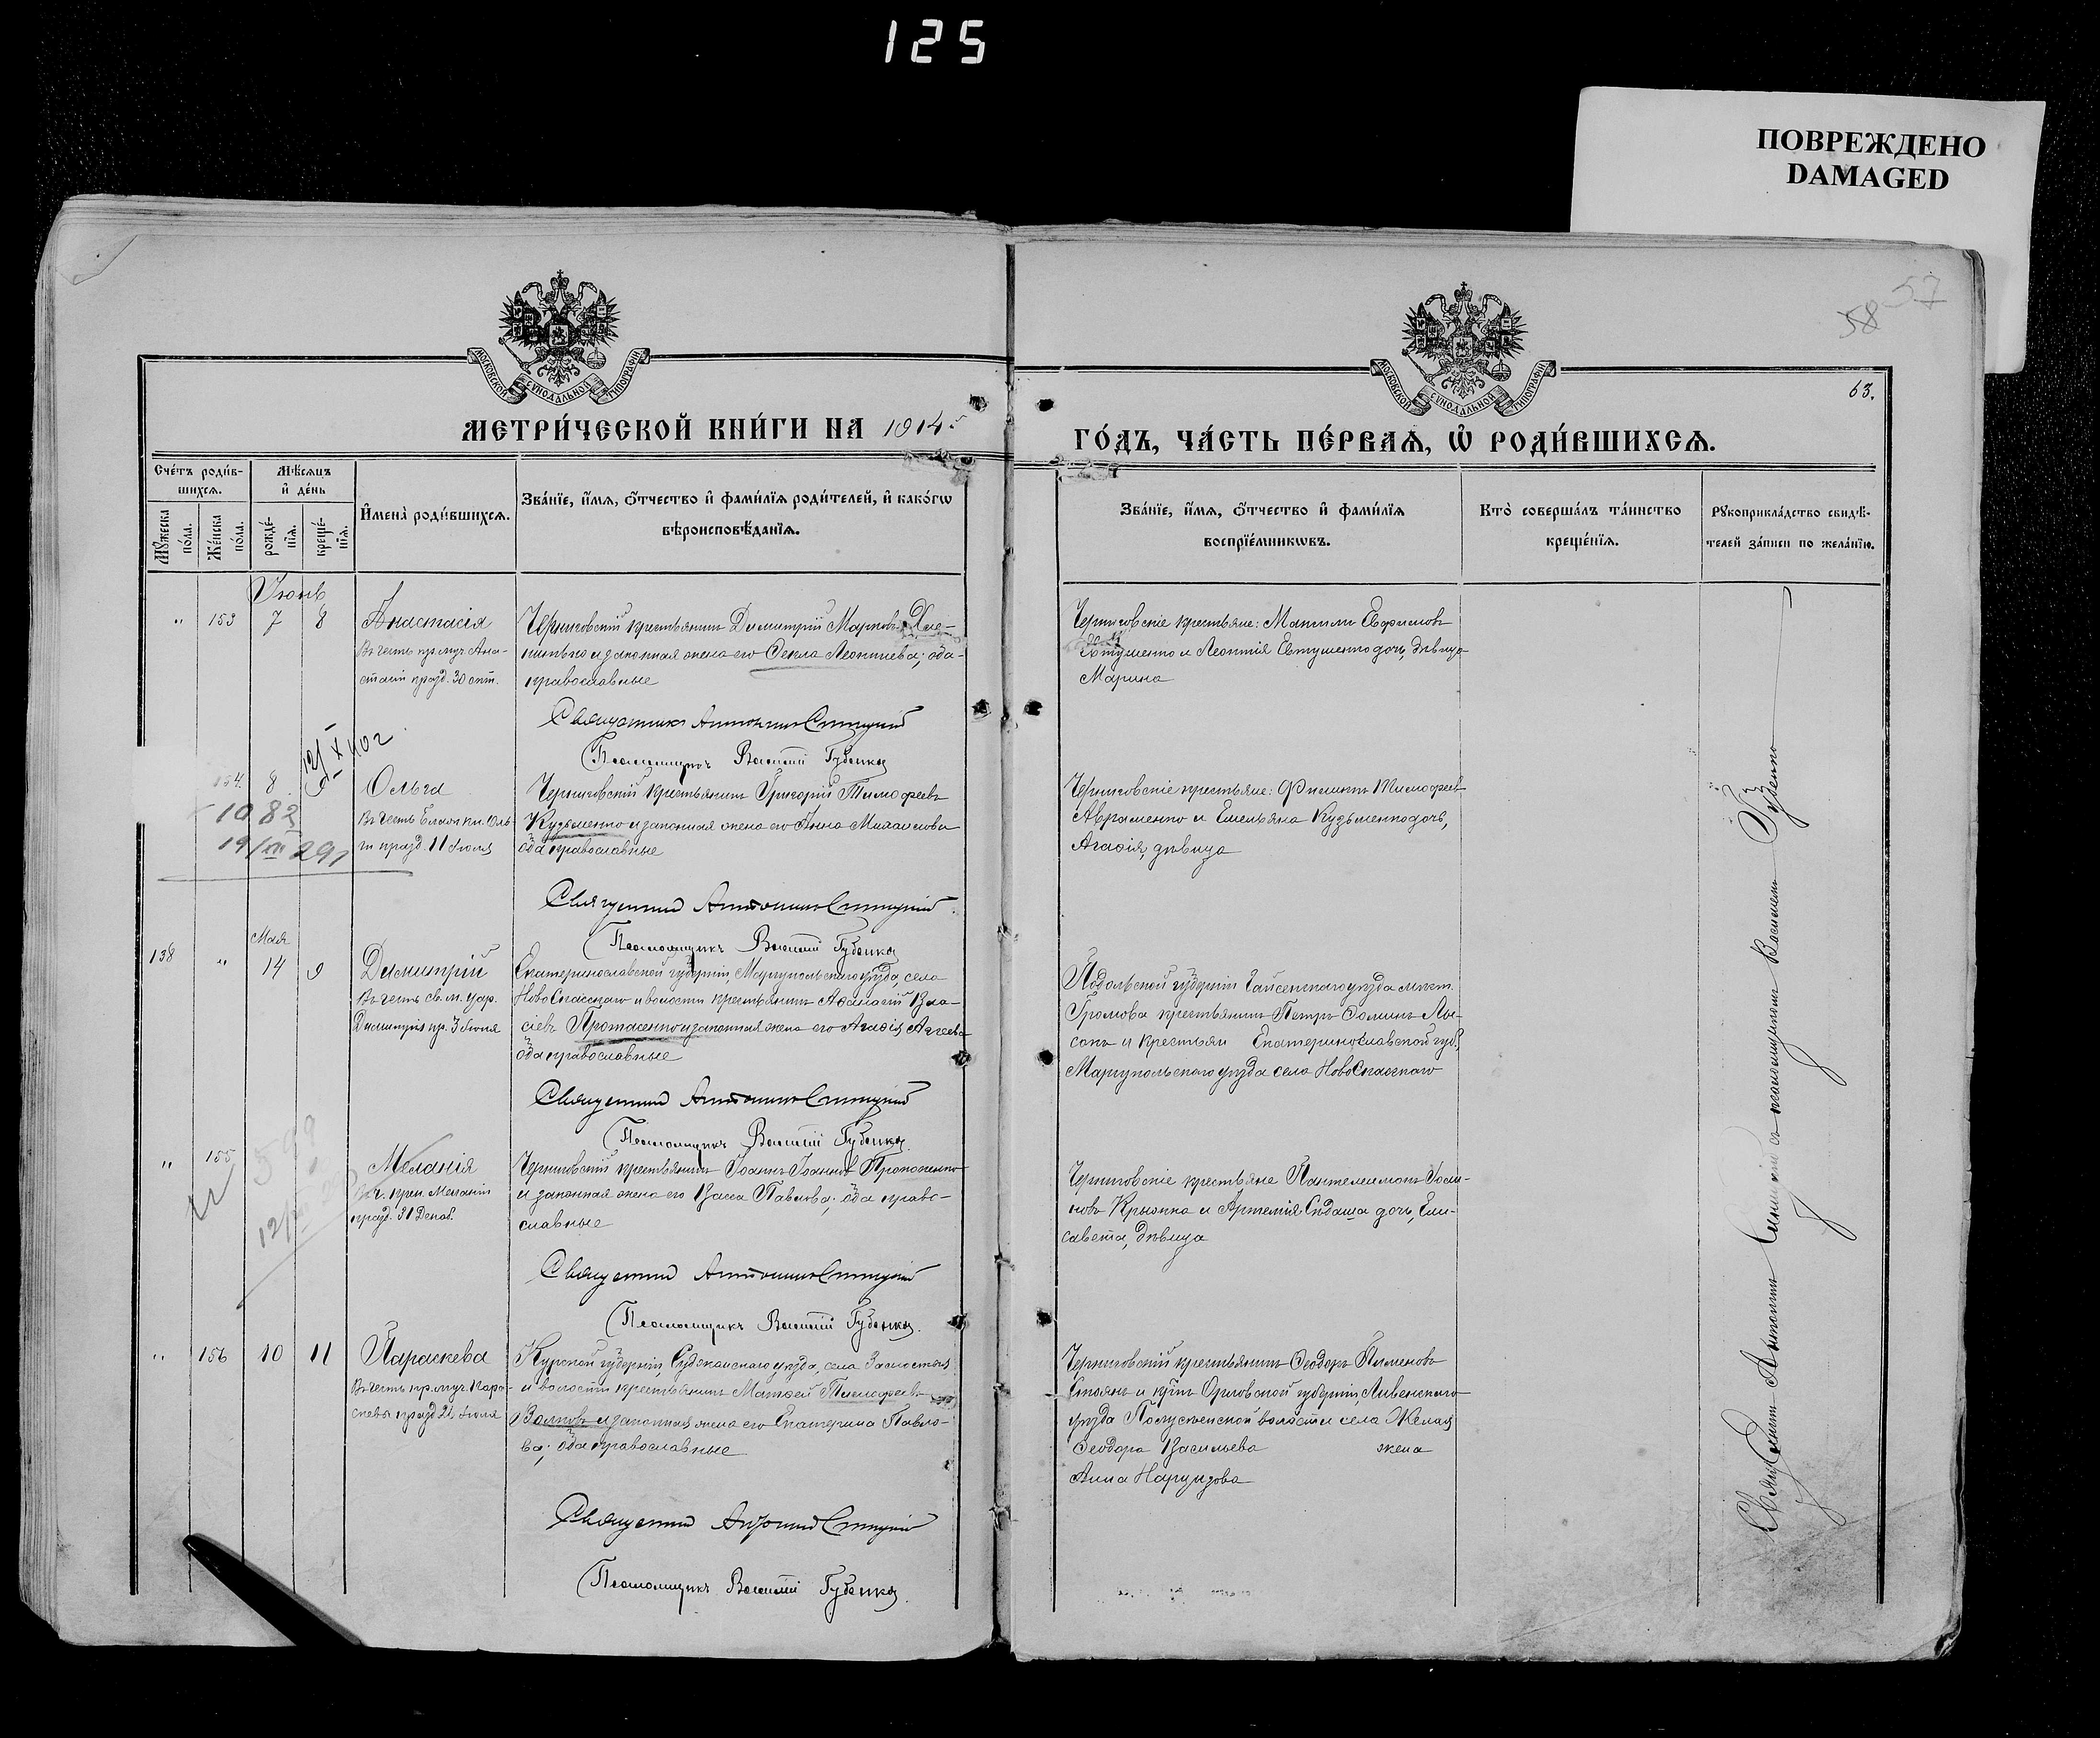 125
ПОВРЕЖДЕНО
DAMAGED
57
58
МОСКОВСКОЙ СѴНОДАЛЬНОЙ ТИПОГРАФІИ
МОСКОВСКОЙ СѴНОДАЛЬНОЙ ТИПОГРАФІИ
63.
МЕТРИ́ЧЕСКОЙ КНИ́ГИ НА 1914
ГО́ДЪ, ЧА́СТЬ ПЕ́РВАѦ, Ѡ҆ РОДИ́ВШИХСѦ.
Сче́тъ роди́в-
шихсѧ.
Мꙋ́жеска по́ла.
Же́нска по́ла.
Мѣ́сѧцъ
и҆ де́нь
рожде́-
нїѧ.
креще́-
нїѧ.
И҆мена̀ роди́вшихсѧ.
Зва́нїе, и҆́мѧ, ѻ҆́тчество и҆ фами́лїѧ роди́телей, и҆ како́гѡ
вѣроисповѣ́данїѧ.
Зва́нїе, и҆́мѧ, ѻ҆́тчество и҆ фами́лїѧ
воспрїе́мникѡвъ.
Кто̀ соверша́лъ та́инство
креще́нїѧ.
Рꙋкоприкла́дство свидѣ́-
телей за́писи по жела́нїю.
Іюнь
" 153 7 8 Анастасія
Въ честь пр. муч. Ана-
стасіи празд. 30 окт.
Черниговскій крестьянинъ Димитрій Марковъ
и законная жена его Ѳекла Леонтиева; оба
православные
Священникъ Антонинъ Синицкій
Псаломщикъ Василій Губенко
Черниговскіе крестьяне: Максимъ Евфимовъ
и Леонтія Евтушенко дочь, дѣвица
Марина
154 8 9 Ольга
Въ честь Благов. кн. Оль-
ги празд. 11 Іюля
12/X 40 г
1082
19/VII 29 г
Черниговскій крестьянинъ Григорій Тимофеевъ
Кузьменко и законная жена его Анна Михаилова
оба православные
Священникъ Антонинъ Синицкій
Псаломщикъ Василій Губенко
Черниговскіе крестьяне: Филиппъ Тимофеевъ
Авраменко и Емельяна Кузьменко дочь,
Агафія, дѣвица
Мая
138 " 14 9 Димитрій
Въ честь св. м. цар.
Димитрія пр. 3 Іюня
Екатеринославской губерніи, Маріупольскаго уѣзда, села
НовоСпасскаго и волости крестьянинъ Аѳанасій Вла-
сіевъ Протасенко и законная жена его Агафія Агеева
оба православные
Священникъ Антонинъ Синицкій
Псаломщикъ Василій Губенко
Подольской губерніи Гайсенскаго уѣзда мѣст.
Громова крестьянинъ Петръ Ѳоминъ Лы-
сакъ и крестьян Екатеринославской губ.,
Маріупольскаго уѣзда села НовоСпасскаго
" 155 Меланія
Въ ч. преп. Меланіи
празд. 31 Декаб.
598
Черниговскій крестьянинъ Іоаннъ Іоанновъ Прокопенко
и законная жена его Васса Павлова; оба право-
славные
Священникъ Антонинъ Синицкій
Псаломщикъ Василій Губенко
Черниговскіе крестьяне Пантелеимонъ
Крышка и Артемія дочь, Ели-
савета, дѣвица
" 156 10 11 Параскева
Въ честь пр. муч. Пара-
скевы празд 26 Іюля
Курской губерніи, Суджанскаго уѣзда, села
и волости крестьянинъ Матѳей Тимофеевъ
Волковъ и законная жена его Екатерина Павло-
ва; оба православные
Священникъ Антонинъ Синицкій
Псаломщикъ Василій Губенко
Черниговскій крестьянинъ Ѳеодоръ Пименовъ
Стоянъ и Орловской губерніи, Ливенскаго
уѣзда волости села
Ѳеодора Васильева жена
Анна
Священникъ Антонинъ Синицкій съ псаломщикомъ Василіемъ Губенко